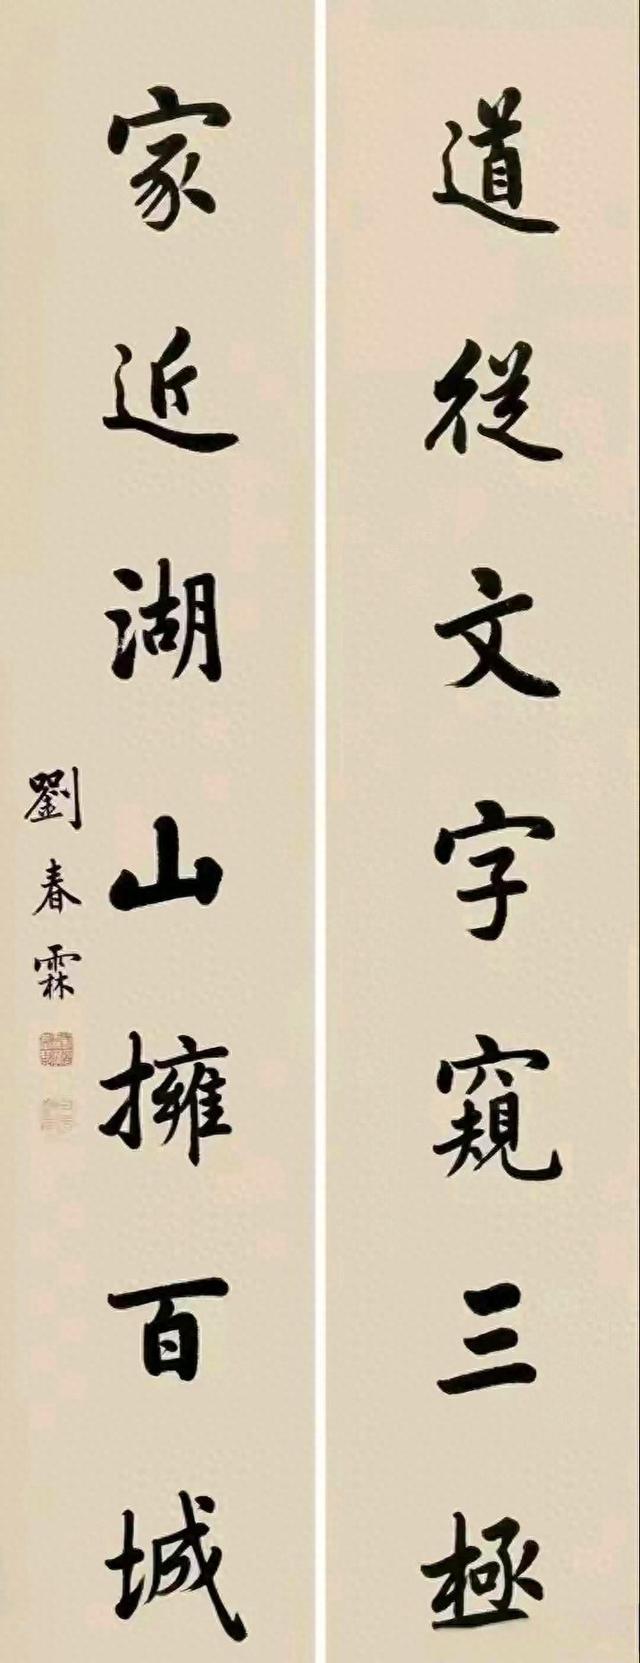 道從文字窺三極
家近湖山擁百城
劉春霖